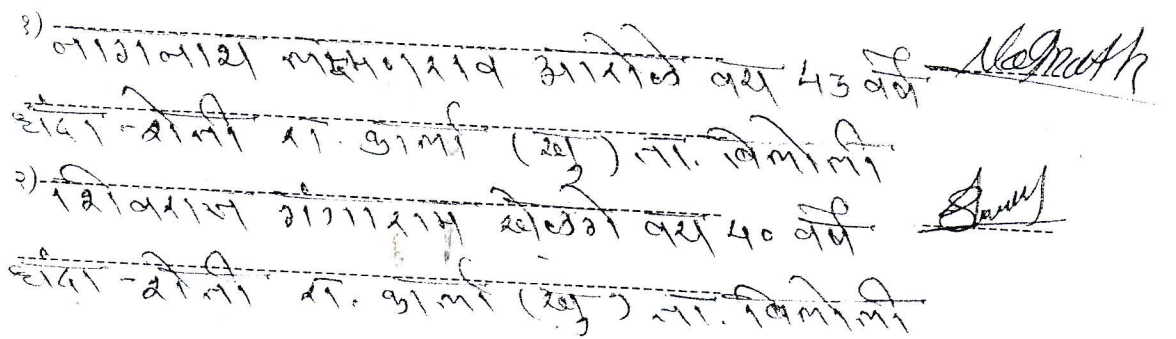 १) नागनाथ लक्ष्मणराव आरोळे वय ५३ वर्षे Nagnath
धंदा - शेती रा. कार्ला (खु) ता. बिलोली
२) शिवराज गंगाराम शेळगे वय ५० वर्षे
धंदा - शेती रा. कार्ला (खु) ता. बिलोली